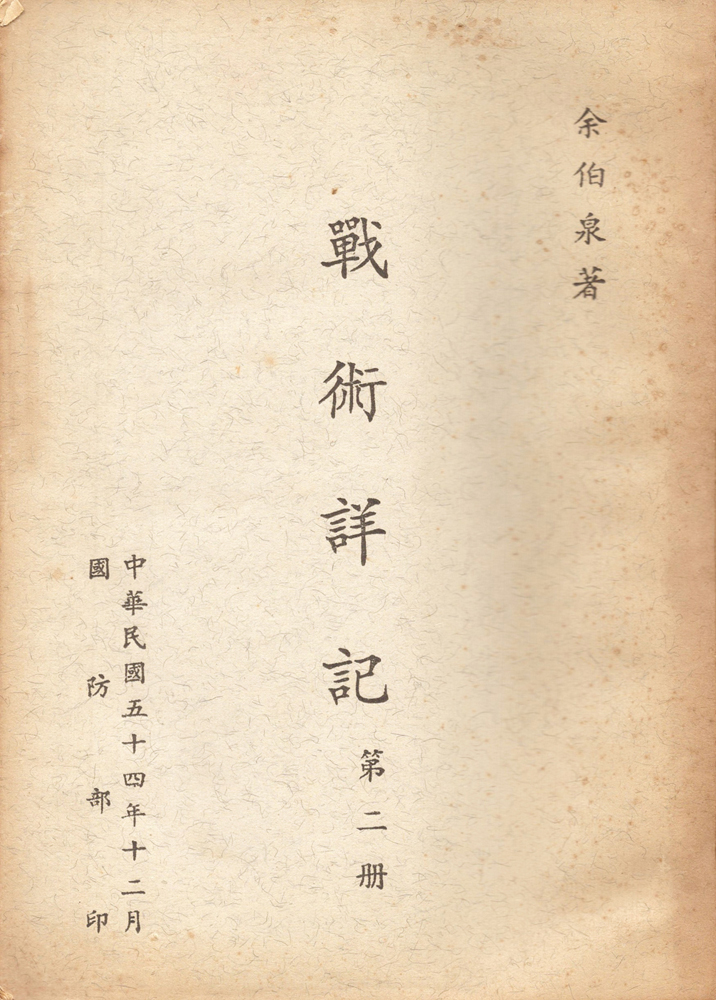 余伯泉著
戰術詳記
第二册
中華民國五十四年十二月
國防部印